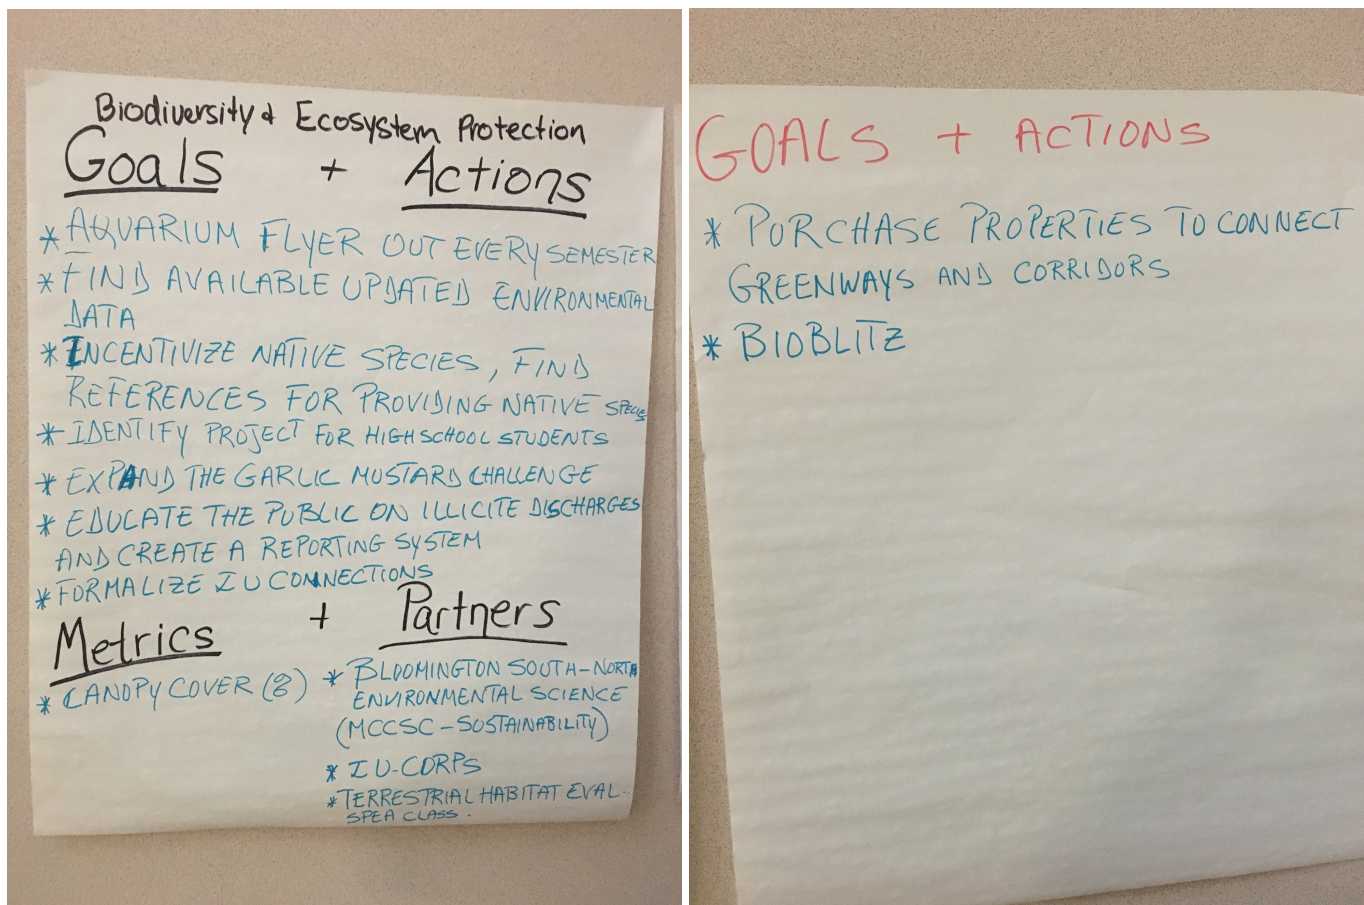 Biodiversity & Ecosystem Protection
Goals + Actions
* AQUARIUM FLYER OUT EVERY SEMESTER
* FIND AVAILABLE UPDATED ENVIRONMENTAL
DATA
* INCENTIVIZE NATIVE SPECIES, FIND
REFERENCES FOR PROVIDING NATIVE SPECIES
* IDENTIFY PROJECT FOR HIGH SCHOOL STUDENTS
* EXPAND THE GARLIC MUSTARD CHALLENGE
* EDUCATE THE PUBLIC ON ILLICITE DISCHARGES
AND CREATE A REPORTING SYSTEM
* FORMALIZE IU CONNECTIONS
Metrics + Partners
* CANOPY COVER (8)
* BLOOMINGTON SOUTH-NORTH
ENVIRONMENTAL SCIENCE
(MCCSC - SUSTAINABILITY)
* IU-CORPS
* TERRESTRIAL HABITAT EVAL-
SPEA CLASS.
GOALS + ACTIONS
* PURCHASE PROPERTIES TO CONNECT
GREENWAYS AND CORRIDORS
* BIOBLITZ